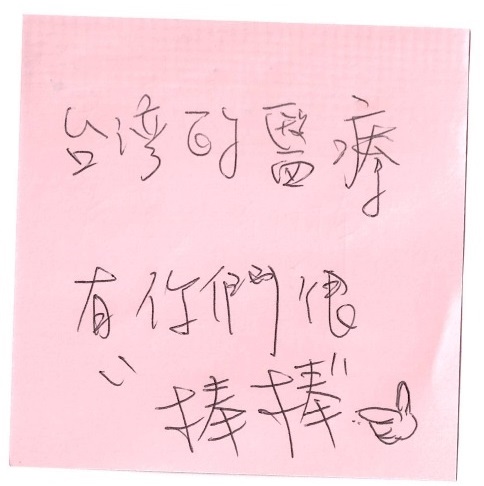 台湾的醫療
有你們很
"棒棒"